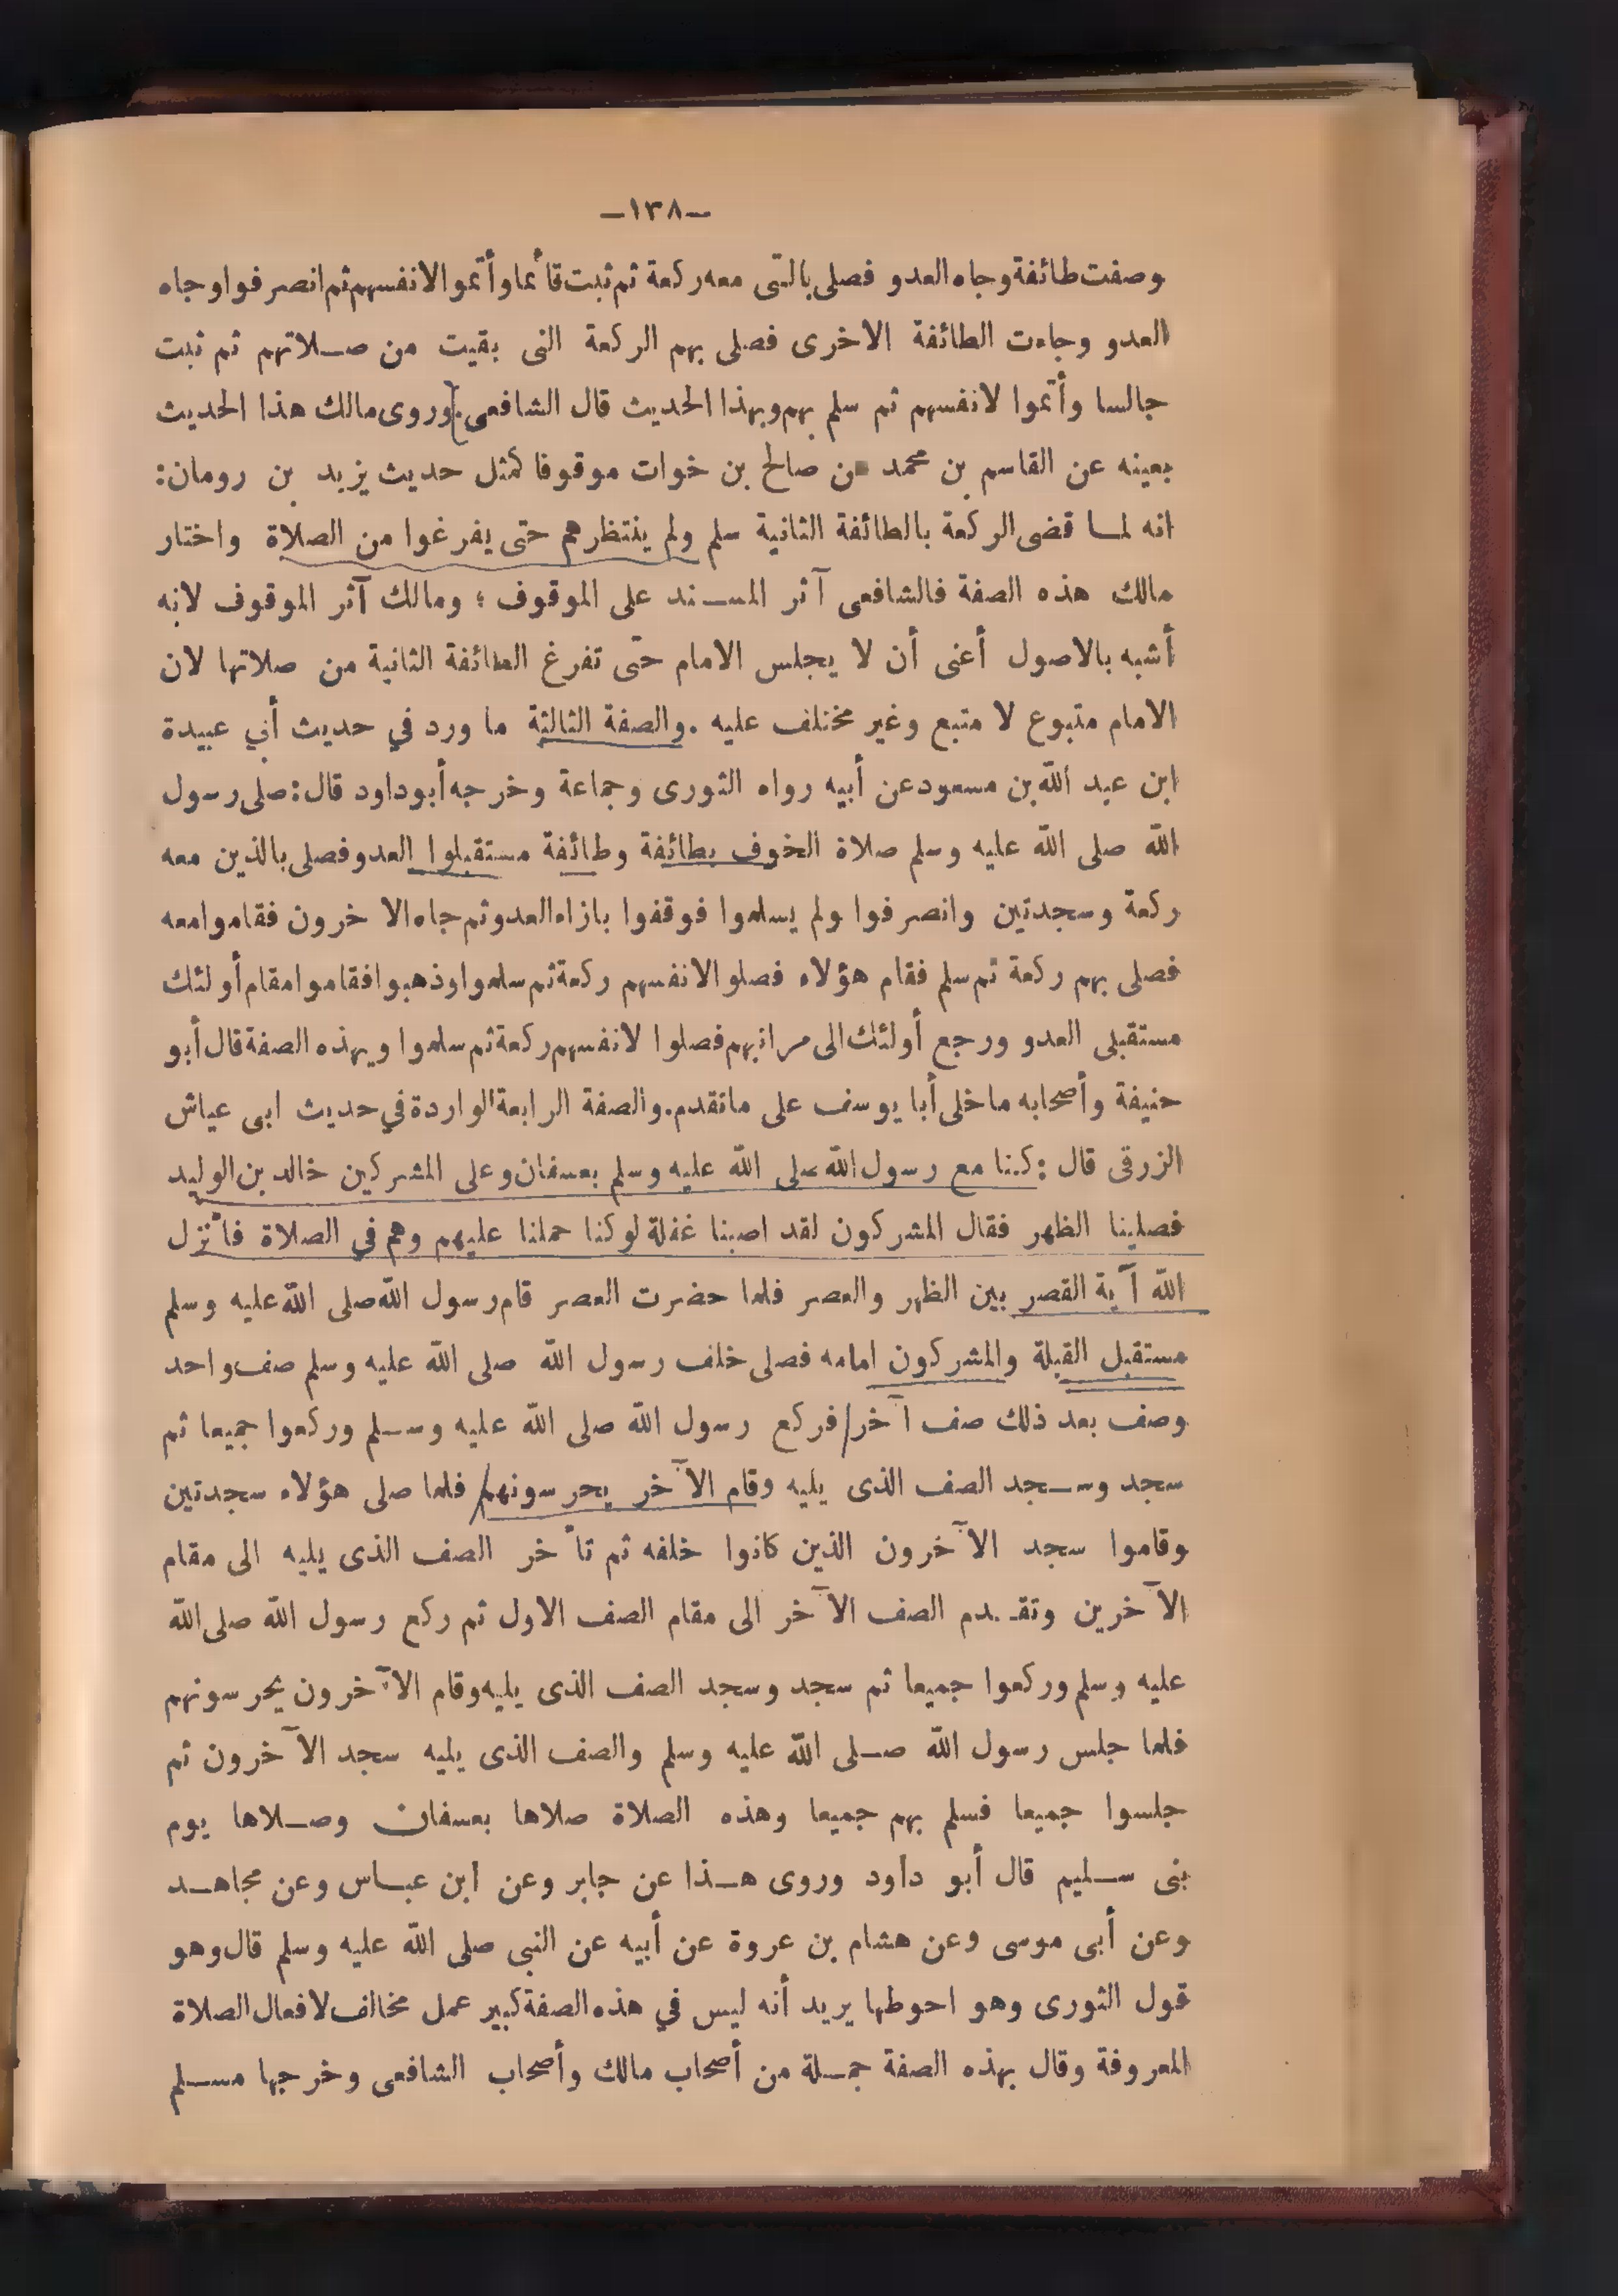 -١٣٨-
وصفت طائفة وجاه العدو فصلى بالتى معه ركعة ثم ثبت قائما وأتموا لانفسهم ثم انصرفوا وجاه
العدو وجاءت الطائفة الاخرى فصلى بهم الركعة التى بقيت من صلاتهم ثم ثبت
جالسا وأتموا لانفسهم ثم سلم بهم وبهذا الحديث قال الشافعى. وروى مالك هذا الحديث
بعينه عن القاسم بن محمد عن صالح بن خوات موقوفا كمثل حديث يزيد بن رومان:
انه لما قضى الركعة بالطائفة الثانية سلم ولم ينتظرهم حتى يفرغوا من الصلاة واختار
مالك هذه الصفة فالشافعى آثر المسند على الموقوف ؛ ومالك آثر الموقوف لانه
أشبه بالاصول أعنى أن لا يجلس الامام حتى تفرغ الطائفة الثانية من صلاتها لان
الامام متبوع لا متبع وغير مختلف عليه . والصفة الثالثة ما ورد في حديث أبي عبيدة
ابن عبد الله بن مسعود عن أبيه رواه الثورى وجماعة وخرجه أبو داود قال: صلى رسول
الله صلى الله عليه وسلم صلاة الخوف بطائفة وطائفة مستقبلوا العدو فصلى بالذين معه
ركعة وسجدتين وانصرفوا ولم يسلموا فوقفوا بازاء العدو ثم جاء الآخرون فقاموا معه
فصلى بهم ركعة ثم سلم فقام هؤلاء فصلوا لانفسهم ركعة ثم سلموا وذهبوا فقاموا مقام أولئك
مستقبلى العدو ورجع أولئك الى مراتبهم فصلوا لانفسهم ركعة ثم سلموا وبهذه الصفة قال أبو
حنيفة وأصحابه ماخلى أبا يوسف على ماتقدم. والصفة الرابعة الواردة في حديث ابى عياش
الزرقى قال : كنا مع رسول الله صلى الله عليه وسلم بعسفان وعلى المشركين خالد بن الوليد
فصلينا الظهر فقال المشركون لقد اصبنا غفلة لو كنا حملنا عليهم وهم في الصلاة فأنزل
الله آية القصر بين الظهر والعصر فلما حضرت العصر قام رسول الله صلى الله عليه وسلم
مستقبل القبلة والمشركون امامه فصلى خلف رسول الله صلى الله عليه وسلم صف واحد
وصف بعد ذلك صف آخر فركع رسول الله صلى الله عليه وسلم وركعوا جميعا ثم
سجد وسجد الصف الذى يليه وقام الآخر يحرسونهم فلما صلى هؤلاء سجدتين
وقاموا سجد الآخرون الذين كانوا خلفه ثم تأخر الصف الذى يليه الى مقام
الآخرين وتقدم الصف الآخر الى مقام الصف الاول ثم ركع رسول الله صلى الله
عليه وسلم وركعوا جميعا ثم سجد وسجد الصف الذى يليه وقام الآخرون يحرسونهم
فلما جلس رسول الله صلى الله عليه وسلم والصف الذى يليه سجد الآخرون ثم
جلسوا جميعا فسلم بهم جميعا وهذه الصلاة صلاها بعسفان وصلاها يوم
بنى سليم قال أبو داود وروى هذا عن جابر وعن ابن عباس وعن مجاهد
وعن أبى موسى وعن هشام بن عروة عن أبيه عن النبى صلى الله عليه وسلم قال وهو
قول الثورى وهو احوطها يريد أنه ليس في هذه الصفة كبير عمل مخالف لافعال الصلاة
المعروفة وقال بهذه الصفة جملة من أصحاب مالك وأصحاب الشافعى وخرجها مسلم